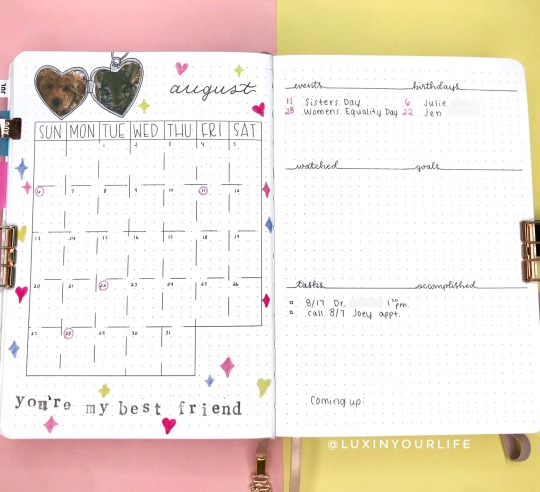 JUL
AUG
august
SUN MON TUE WED THU FRI SAT
1 2 3 4 5
6 7 8 9 10 11 12
13 14 15 16 17 18 19
20 21 22 23 24 25 26
27 28 29 30 31
you're my best friend
events birthdays
11 Sisters Day 6 Julie
28 Womens Equality Day 22 Jen
watched goals
tasks accomplished
8/17 Dr. 1³⁰pm.
call 8/7 Joey appt.
Coming up:
@LUXINYOURLIFE